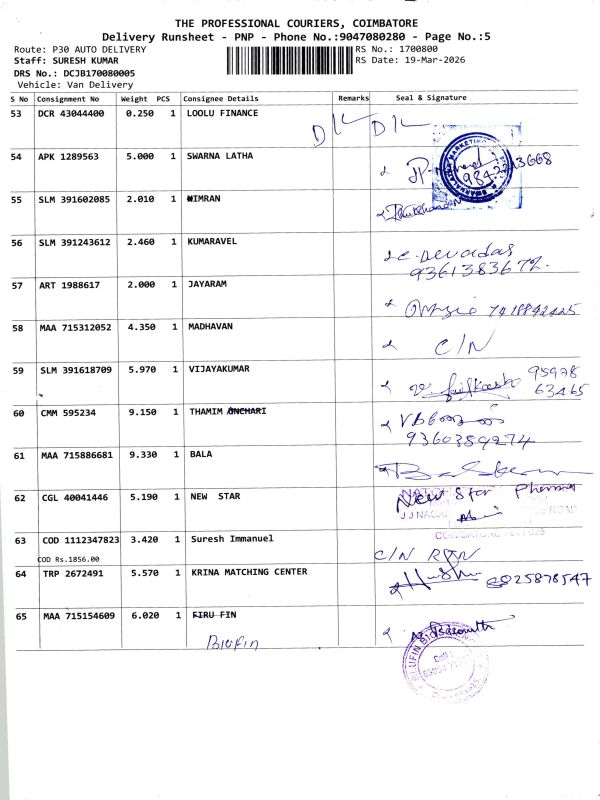 THE PROFESSIONAL COURIERS, COIMBATORE
Delivery Runsheet - PNP - Phone No.:9047080280 - Page No.:5
Route: P30 AUTO DELIVERY RS No.: 1700800
Staff: SURESH KUMAR RS Date: 19-Mar-2026
DRS No.: DCJB170080005
Vehicle: Van Delivery
S No Consignment No Weight PCS Consignee Details Remarks Seal & Signature
53 DCR 43044400 0.250 1 LOOLU FINANCE D/L D/L
54 APK 1289563 5.000 1 SWARNA LATHA
9842213668
55 SLM 391602085 2.010 1 NIMRAN
56 SLM 391243612 2.460 1 KUMARAVEL
C. Devadas
9361383672
57 ART 1988617 2.000 1 JAYARAM 7418842425
58 MAA 715312052 4.350 1 MADHAVAN C/N
59 SLM 391618709 5.970 1 VIJAYAKUMAR 95978
63465
60 CMM 595234 9.150 1 THAMIM ANCHARI
9360389274
61 MAA 715886681 9.330 1 BALA
62 CGL 40041446 5.190 1 NEW STAR New Star Pharma
J.J NAGAR ROAD
COIMBATORE
63 COD 1112347823 3.420 1 Suresh Immanuel
COD Rs.1856.00 C/N RTN
64 TRP 2672491 5.570 1 KRINA MATCHING CENTER 8825878547
65 MAA 715154609 6.020 1 FIRU FIN
Blufin